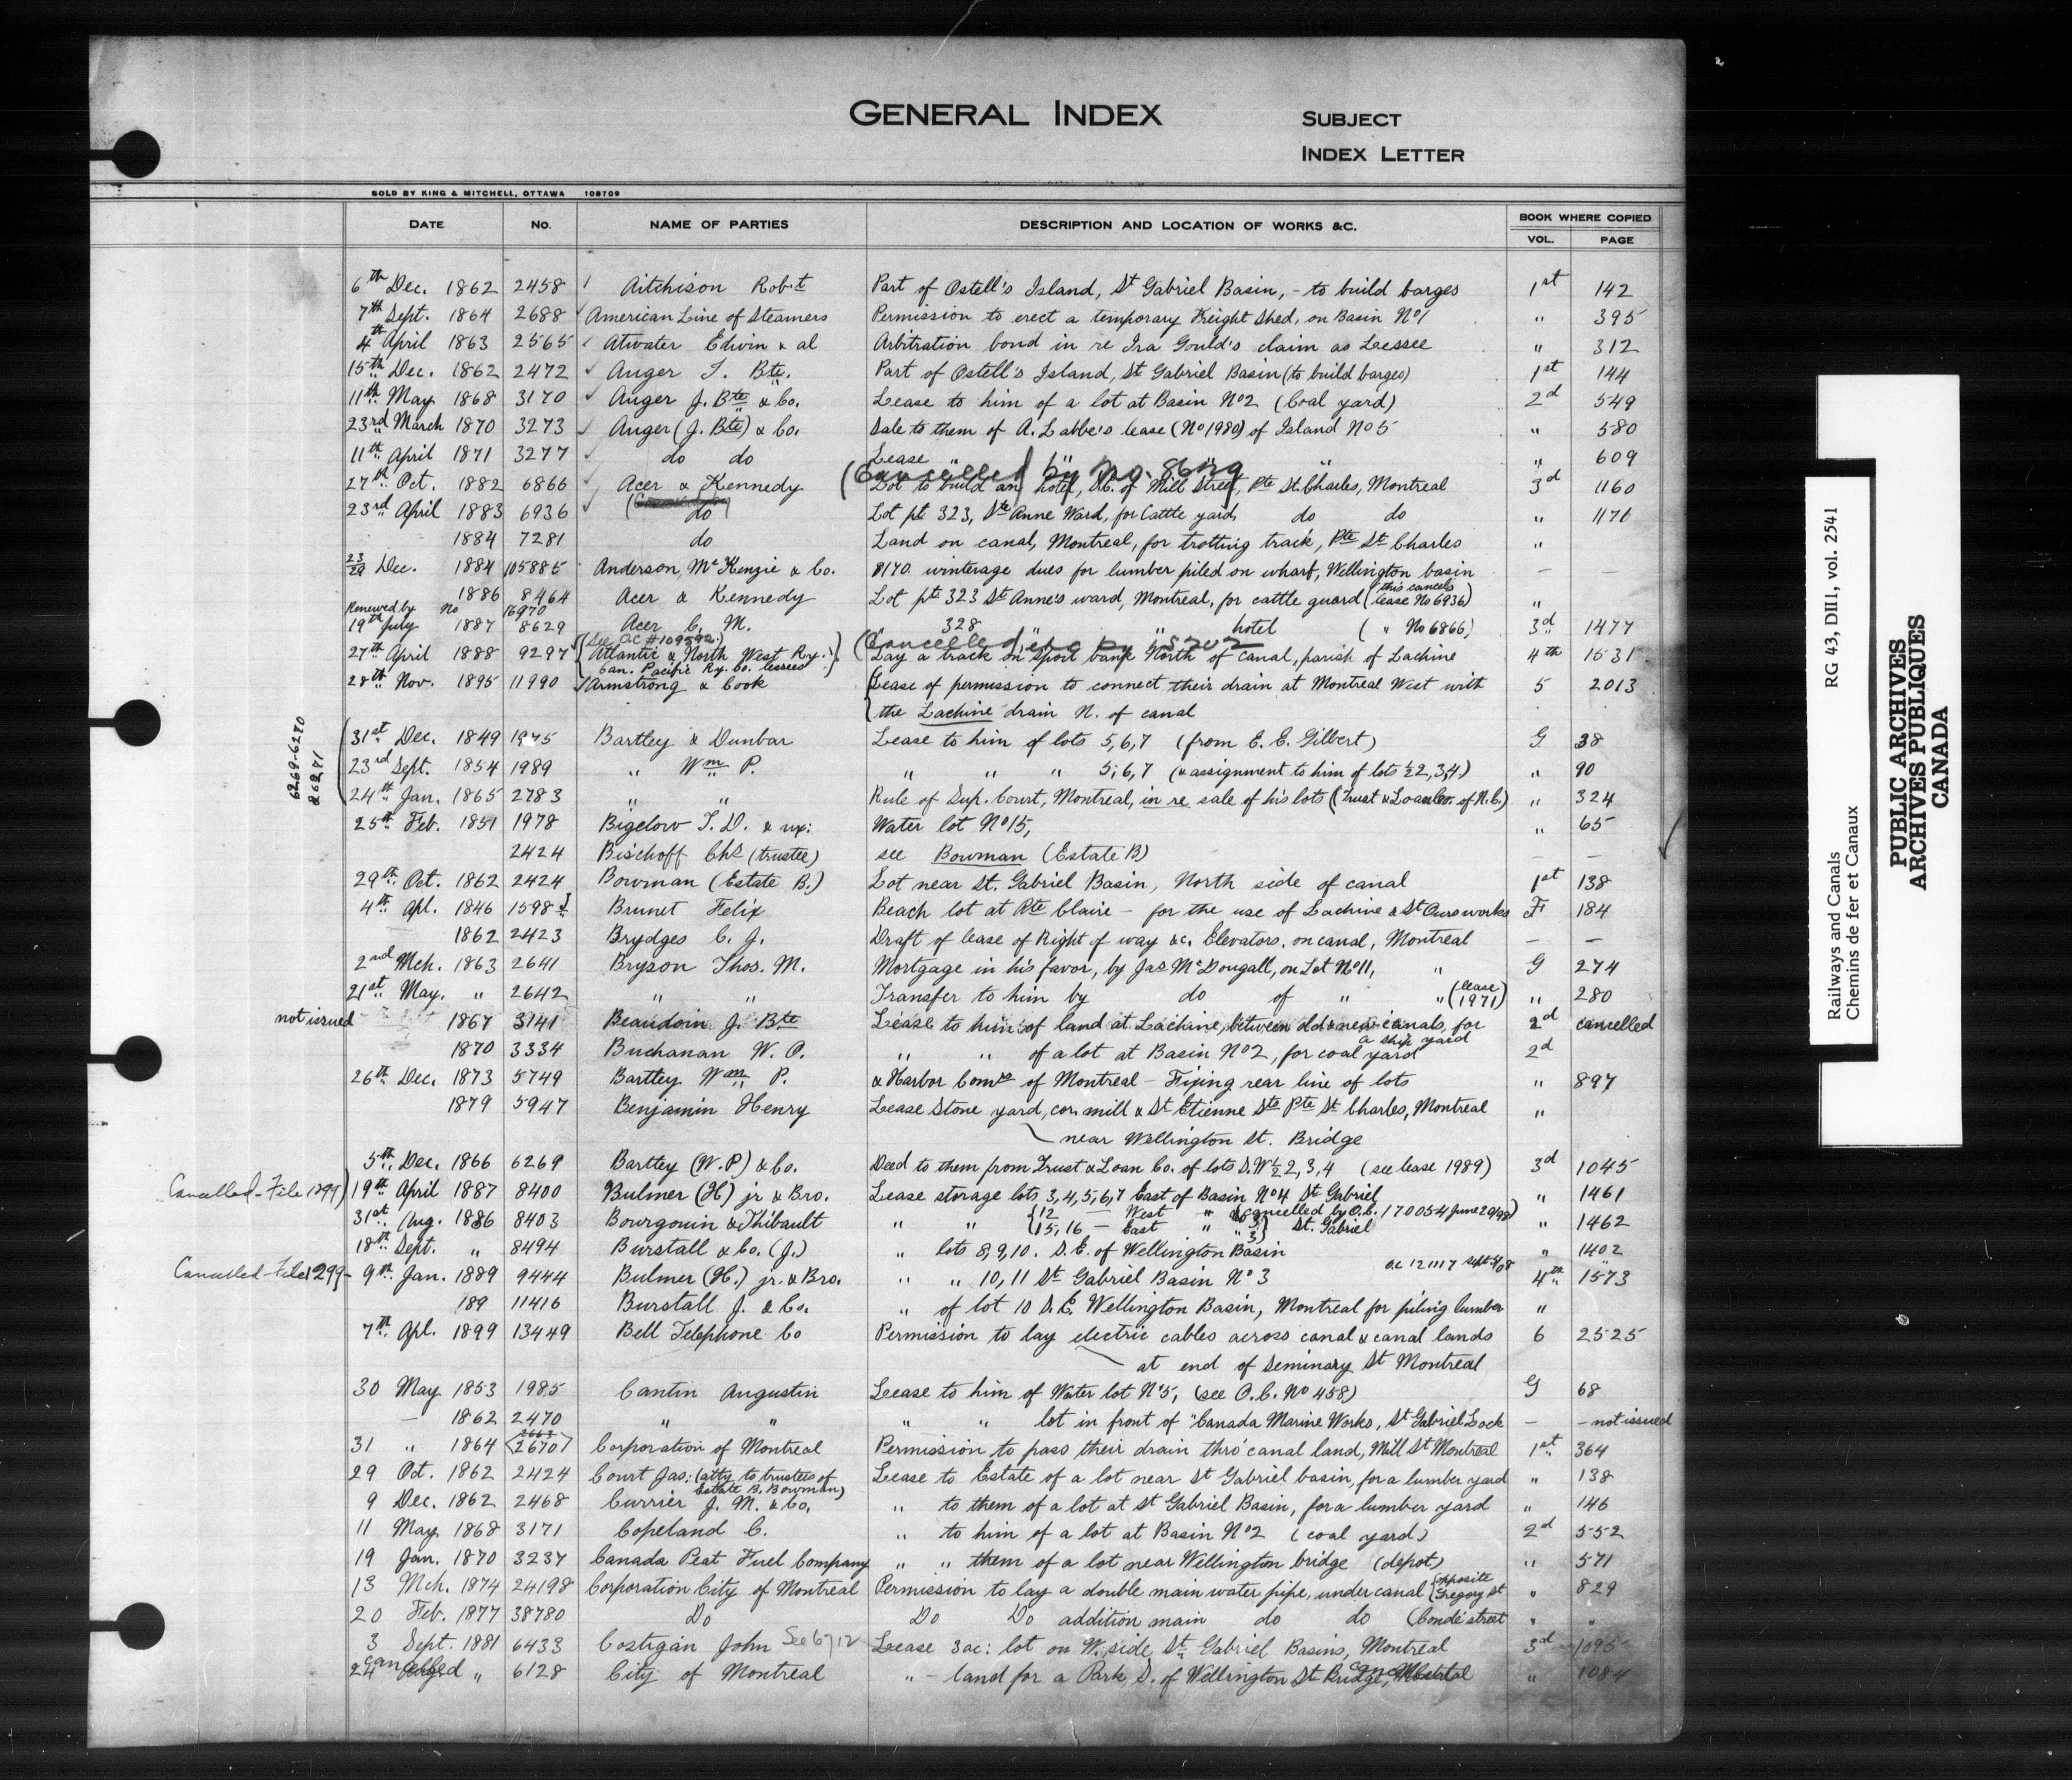 GENERAL INDEX
SUBJECT
INDEX LETTER
SOLD BY KING & MITCHELL, OTTAWA 108709
DATE No. NAME OF PARTIES DESCRIPTION AND LOCATION OF WORKS &C. BOOK WHERE COPIED
VOL. PAGE
6th Dec. 1862 2458 Aitchison Robt Part of Ostell's Island, St Gabriel Basin, - to build barges 1st 142
7th Sept. 1864 2688 American Line of Steamers Permission to erect a temporary Freight Shed, on Basin No 1 " 395
4th April 1863 2565 Atwater Edwin & al Arbitration bond in re Ira Gould's claim as Lessee " 312
15th Dec. 1862 2472 Auger J. Bte. Part of Ostell's Island, St Gabriel Basin (to build barges) 1st 144
11th May 1868 3170 Auger J. Bte & Co. Lease to him of a lot at Basin No 2 (Coal yard) 2d 549
23rd March 1870 3273 Auger (J. Bte) & Co. Sale to them of A. Labbe's lease (No 1980) of Island No 5 " 580
11th April 1871 3277 do do Lease " " " " 609
(Cancelled by No. 8629
27th Oct. 1882 6866 Acer & Kennedy Lot to build an hotel, S.E. of Mill Street, Pte St. Charles, Montreal 3d 1160
23rd April 1883 6936 do Lot pt 323, Ste Anne Ward, for Cattle yard do do " 1171
1884 7281 do Land on canal, Montreal, for trotting track, Pte St Charles "
23/29 Dec. 1884 105885 Anderson, McKenzie & Co. $170. winterage dues for lumber piled on wharf, Wellington basin — —
1886 8464 Acer & Kennedy Lot pt 323 St Anne's ward, Montreal, for cattle guard (this cancels lease No 6936) "
Renewed by No 16970
19th July 1887 8629 Acer C. M. " 328 " " hotel ( " No 6866) 3d 1477
(See O.C. #109592.)
27th April 1888 9297 Atlantic & North West Ry. Lay a track on spoil bank North of canal, parish of Lachine 4th 1531
Can. Pacific Ry. Co. lessees
28th Nov. 1895 11990 Armstrong & Cook Lease of permission to connect their drain at Montreal West with 5 2013
the Lachine drain N. of canal
6269-6270
& 6271
31st Dec. 1849 1975 Bartley & Dunbar Lease to him of lots 5, 6, 7 (from E. E. Gilbert) G 38
23rd Sept. 1854 1989 " Wm P. " " " 5, 6, 7 (& assignment to him of lots ½ 2, 3, 4) " 90
24th Jan. 1865 2783 " " Rule of Sup. Court, Montreal, in re sale of his lots (Trust & Loan Co. of U.C.) " 324
25th Feb. 1851 1978 Bigelow J. D. & ux: Water lot No 15, " 65
2424 Bischoff Chs (trustee) see Bowman (Estate B) — —
29th Oct. 1862 2424 Bowman (Estate B.) Lot near St. Gabriel Basin, North side of canal 1st 138
4th Apl. 1846 1598 Brunet Felix Beach lot at Pte Claire - for the use of Lachine & St Ours works F 184
1862 2423 Brydges C. J. Draft of lease of Right of way &c. Elevators, on canal, Montreal — —
2nd Mch. 1863 2641 Bryson Thos. M. Mortgage in his favor, by Jas McDougall, on Lot No 11, " G 274
21st May. " 2642 " " Transfer to him by do of " " (lease 1971) " 280
not issued 1867 3141 Beaudoin J. Bte Lease to him of land at Lachine, between old & new canals, for a ship yard 2d cancelled
1870 3334 Buchanan W. O. " " of a lot at Basin No 2, for coal yard 2d
26th Dec. 1873 5749 Bartley Wm P. & Harbor Comrs of Montreal - Fixing rear line of lots " 897
1879 5947 Benjamin Henry Lease Stone yard, cor. mill & St Etienne Sts Pte St Charles, Montreal "
near Wellington St. Bridge
5th Dec. 1866 6269 Bartley (W. P) & Co. Deed to them from Trust & Loan Co. of lots S.W ½ 2, 3, 4 (see lease 1989) 3d 1045
Cancelled - File 1299) 19th April 1887 8400 Bulmer (H) jr & Bro. Lease storage lots 3, 4, 5, 6, 7 East of Basin No 4 St Gabriel " 1461
31st Aug. 1886 8403 Bourgouin & Thibault " " {12 — West " (Cancelled by O.C. 17005-4 June 29/98)
{15, 16 — East " " 3} St. Gabriel " 1462
18th Sept. " 8494 Burstall & Co. (J.) " lots 8, 9, 10. S.E. of Wellington Basin " 1402
Cancelled - File 1299 - 9th Jan. 1889 9444 Bulmer (H.) jr. & Bro. " " 10, 11 St Gabriel Basin No 3 4th 1573
189 11416 Burstall J. & Co. " of lot 10 S.E. Wellington Basin, Montreal for piling lumber "
7th Apl. 1899 13449 Bell Telephone Co Permission to lay electric cables across canal & canal lands 6 2525
at end of Seminary St Montreal
30 May 1853 1985 Cantin Augustin Lease to him of Water lot No 5, (see O.C. No 458) G 68
— 1862 2470 " " " " lot in front of "Canada Marine Works, St Gabriel Lock — - not issued
2663
31 " 1864 <2670> Corporation of Montreal Permission to pass their drain thro' canal land, Mill St Montreal 1st 364
29 Oct. 1862 2424 Court Jas: (atty to trustees of Estate B. Bowman) Lease to Estate of a lot near St Gabriel basin, for a lumber yard " 138
9 Dec. 1862 2468 Currier J. M. & Co. " to them of a lot at St Gabriel Basin, for a lumber yard " 146
11 May 1868 3171 Copeland C. " to him of a lot at Basin No 2 (coal yard) 2d 552
19 Jan. 1870 3237 Canada Peat Fuel Company " " them of a lot near Wellington bridge (depot) " 571
13 Mch. 1874 24198 Corporation City of Montreal Permission to lay a double main water pipe, under canal (opposite Gregory St " 829
20 Feb. 1877 38780 Do Do Do addition main do do (Condé street " "
3 Sept. 1881 6433 Costigan John See 6712 Lease 3 ac: lot on W. side St. Gabriel Basins, Montreal 3d 1095
24 cancelled " 6128 City of Montreal " - land for a Park, S. of Wellington St Bridge, Montreal " 1084
RG 43, DII1, vol. 2541
Railways and Canals
Chemins de fer et Canaux
PUBLIC ARCHIVES
ARCHIVES PUBLIQUES
CANADA